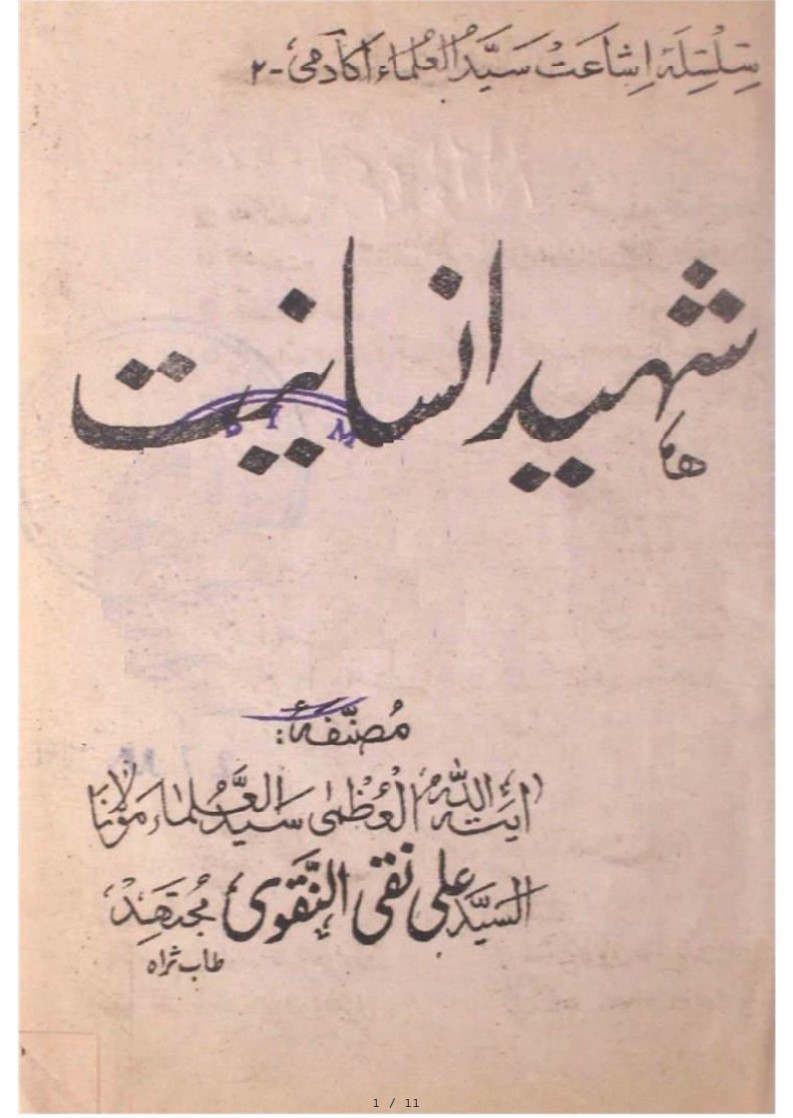 سِلسِلَۂ اِشاعَتْ سَیَّدُ العُلماء اکاَدمی - ۲
شہید انسانیت
مُصنّفہٗ:
آیتہ اللہ العُظمٰی سَیدُ العُلماء مَولانا
السیّد علی نقی النّقوی مُجتَهِدْ
طاب ثراہ
1 / 11